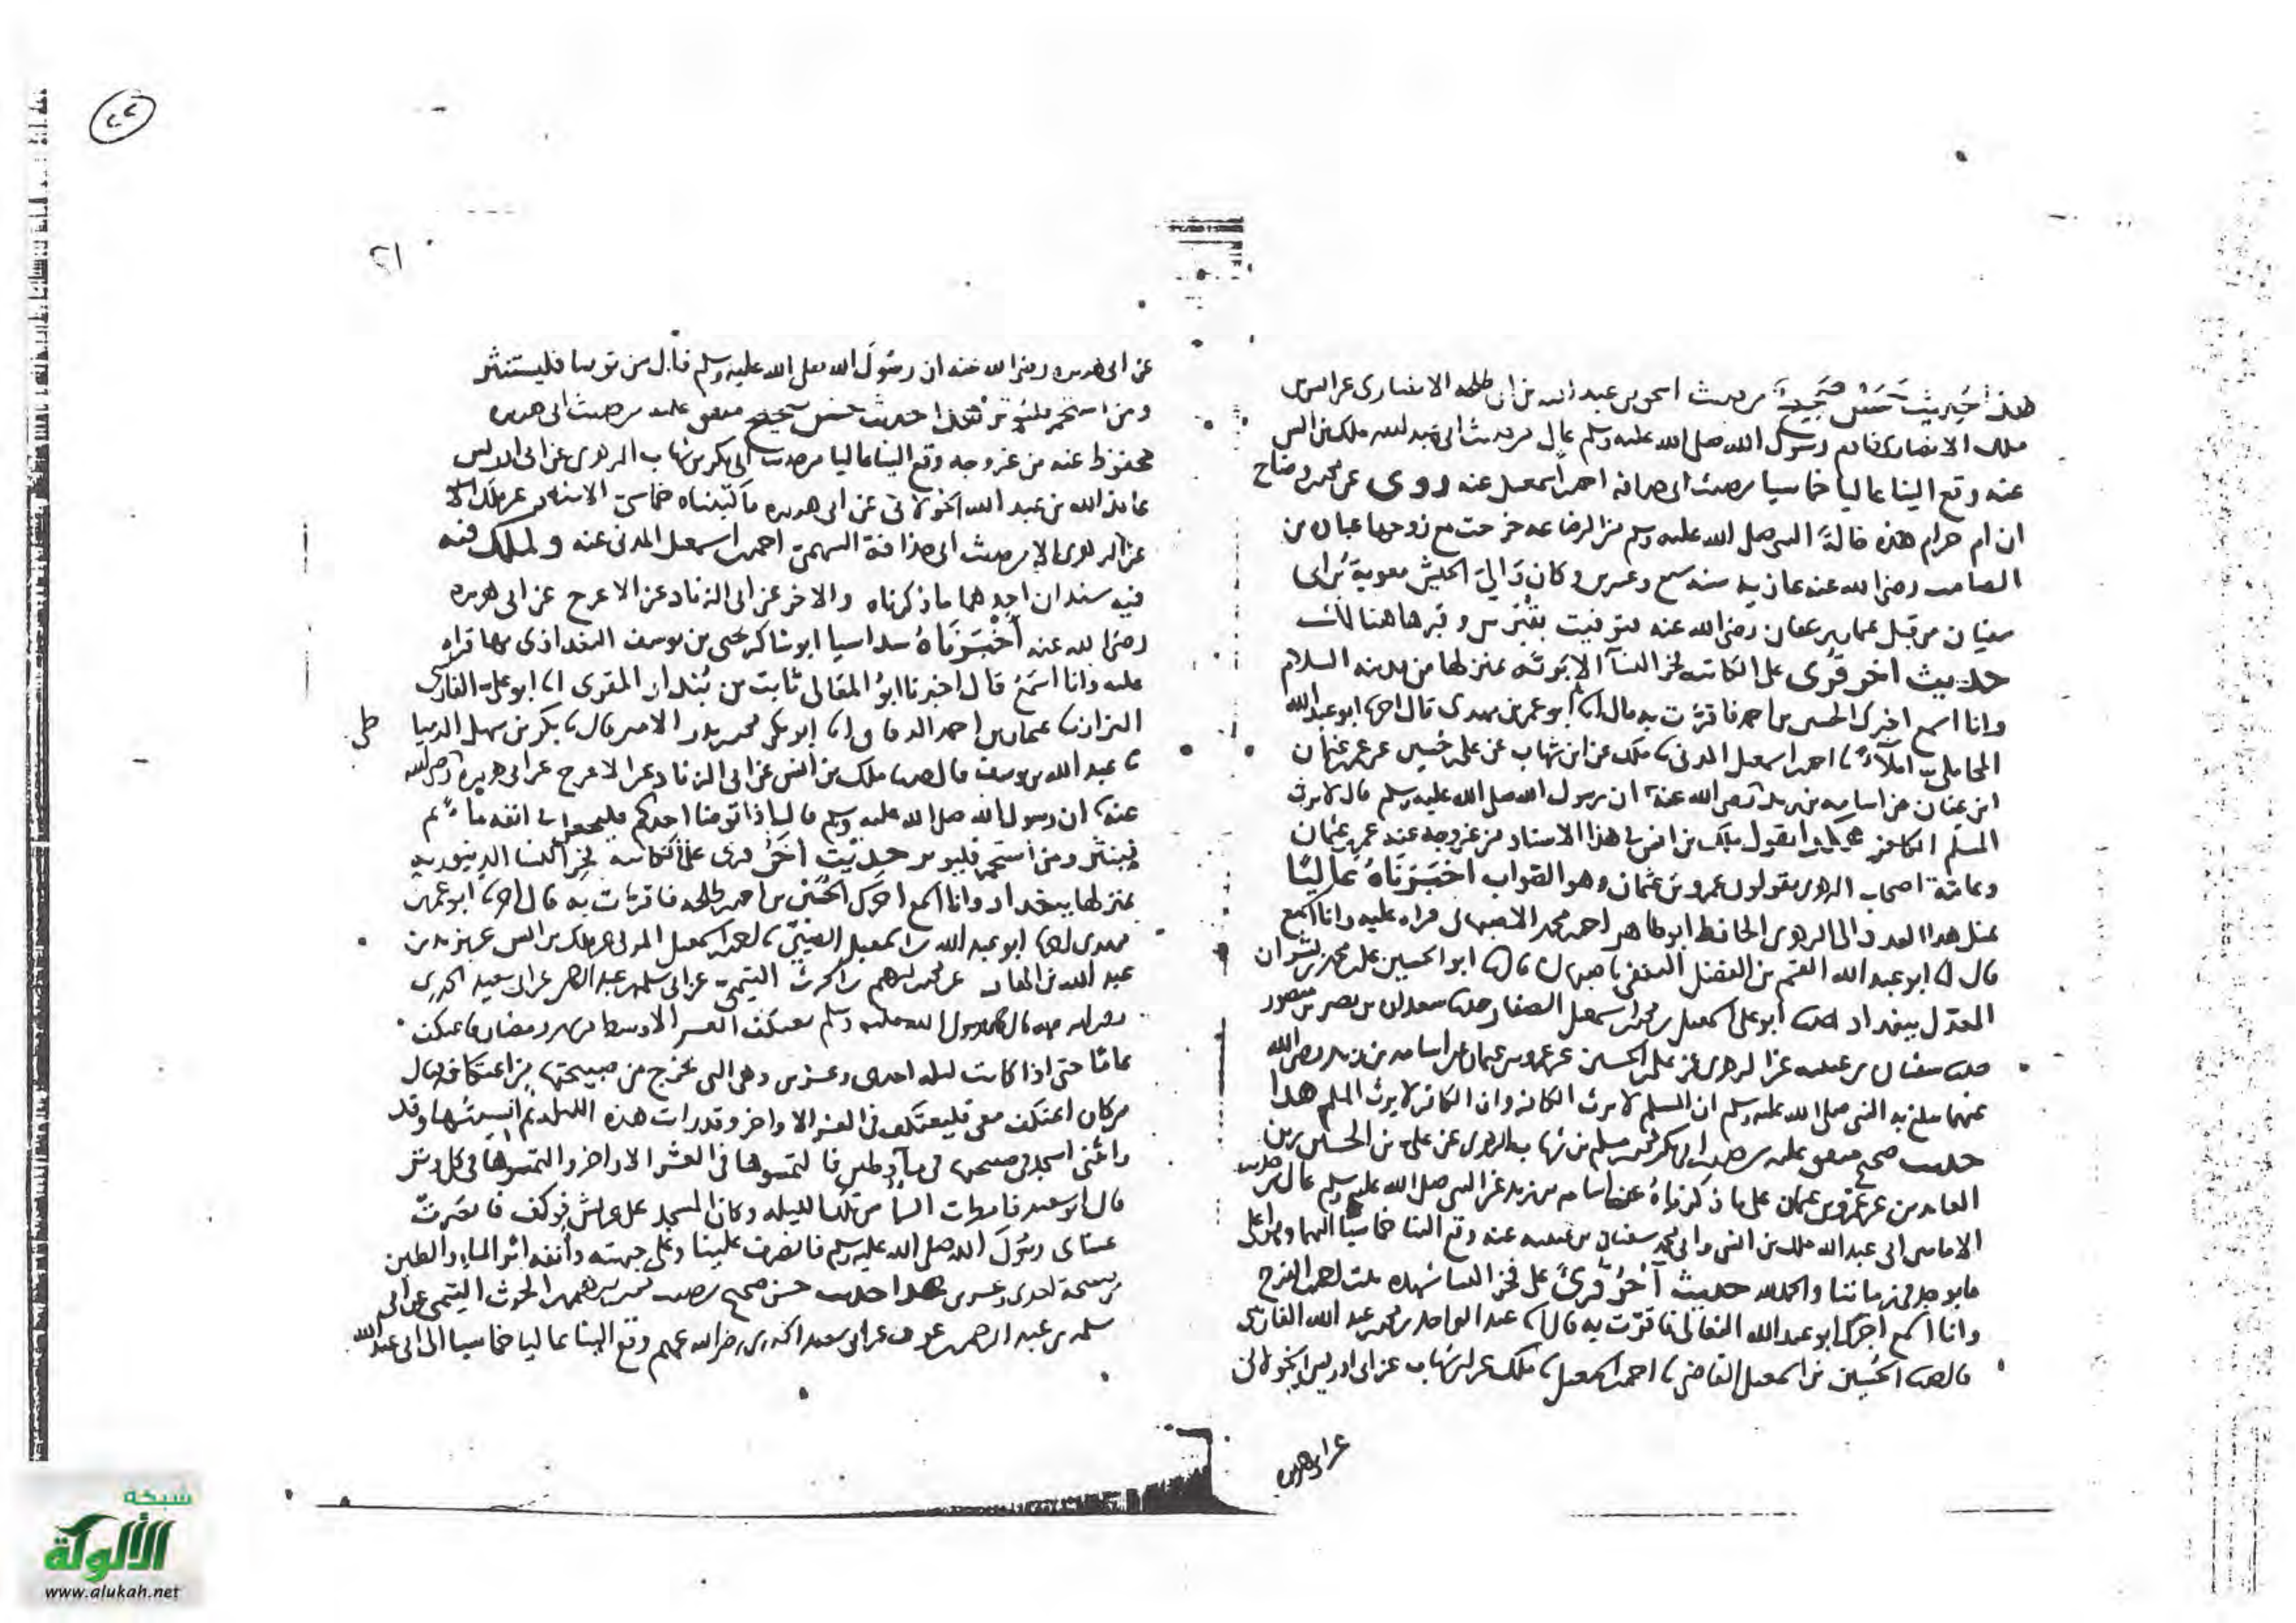 هذا حديث حسن صحيح من حديث اسحق بن عبد الله بن ابي طلحه الانصاري عن انس بن
ملك الانصاري خادم رسول الله صلى الله عليه وسلم عال من حديث ابي عبد الله ملك بن انس
عنه وقع الينا عاليا خماسيا من حديث ابي حذافه احمد بن اسمعيل عنه روى عن محمد بن وضاح
ان ام حرام هذه خالة النبي صلى الله عليه وسلم من الرضاعه خرجت مع زوجها عباده بن
الصامت رضي الله عنه غازيه سنه سبع وعشرين وكان والي الجيش معوية بن ابي
سفيان من قبل عثمان بن عفان رضي الله عنه فتوفيت بقبرس وقبرها هنالك
حديث اخر قرى على الكاتبه فخر النسآ الابريه بمنزلها من مدينه السلام
وانا اسمع اخبرك الحسين بن احمد فاقرت به قال انا ابو عمر بن مهدى قال اخبرنا ابو عبد الله
المحاملي املآء نا احمد بن اسمعيل المدني نا ملك عن ابن شهاب عن علي بن حسين عن عمر بن عثمان
ابن عفان عن اسامه بن زيد رضي الله عنه ان رسول الله صلى الله عليه وسلم قال لا يرث
المسلم الكافر هكذا يقول ملك بن انس في هذا الاسناد من غير وجه عنه عمر بن عثمان
وعامة اصحاب الزهري يقولون عمرو بن عثمان وهو الصواب اخبرناه عاليا
بمثل هذا العدد الى الزهري الحافظ ابو طاهر احمد بن محمد الاصبهاني قراه عليه وانا اسمع
قال انا ابو عبد الله القسم بن الفضل الثقفي باصبهان قال نا ابو الحسين علي بن محمد بن بشران
المعدل ببغداد نا ابو علي اسمعيل بن محمد بن اسمعيل الصفار حدثنا سعدان بن نصر بن منصور
حدثنا سفيان بن عيينه عن الزهري عن علي بن الحسين عن عمرو بن عثمان عن اسامه بن زيد رضي الله
عنهما يبلغ به النبي صلى الله عليه وسلم ان المسلم لا يرث الكافر وان الكافر لا يرث المسلم هذا
حديث صحيح متفق عليه من حديث ابي بكر محمد بن مسلم بن شهاب الزهري عن علي بن الحسين زين
العابدين عن عمرو بن عثمان على ما ذكرناه عن اسامه بن زيد عن النبي صلى الله عليه وسلم عال من حديث
الامامين ابي عبد الله ملك بن انس وابي محمد سفيان بن عيينه عنه وقع الينا خماسيا اليهما وهو اعلى
ما يوجد في زماننا والحمد لله حديث آخر قرئ على فخر النسا شهده بنت احمد بن الفرج
وانا اسمع اخبرك ابو عبد الله النعالي فاقرت به قال نا عبد الواحد بن محمد بن عبد الله الفارسي
قال حدثنا الحسين بن اسمعيل القاضي نا احمد بن اسمعيل نا ملك عن ابن شهاب عن ابي ادريس الخولاني
عن ابي هريره
٢١
عن ابي هريره رضي الله عنه ان رسول الله صلى الله عليه وسلم قال من توضا فليستنثر
ومن استجمر فليوتر هذا حديث حسن صحيح متفق عليه من حديث ابي هريره
محفوظ عنه من غير وجه وقع الينا عاليا من حديث ابي بكر بن شهاب الزهري عن ابي ادريس
عايذ الله بن عبد الله الخولاني عن ابي هريره ما كتبناه خماسي الاسناد عن ملك
عن الزهري الا من حديث ابي حذافة السهمي احمد بن اسمعيل المدني عنه ولملك فيه
فيه سندان احدهما ما ذكرناه والاخر عن ابي الزناد عن الاعرج عن ابي هريره
رضي الله عنه أخبرناه سداسيا ابو شاكر يحيى بن يوسف البغداذي بها قراه
عليه وانا اسمع قال اخبرنا ابو المعالي ثابت بن بندار المقرى انا ابو علي الفارسي
البزاز نا عثمان بن احمد الدقاق نا ابو بكر محمد بن بدر الامير قال نا بكر بن سهل الدميا
طي
نا عبد الله بن يوسف قال حدثنا ملك بن انس عن ابي الزناد عن الاعرج عن ابي هريره رضي الله
عنه ان رسول الله صلى الله عليه وسلم قال اذا توضا احدكم فليجعل في انفه ماء ثم
لينثر ومن استجمر فليوتر حديث اخر قرى على الكاتبه فخر النسا الدينوريه
بمنزلها ببغداد وانا اسمع اخبرك الحسين بن احمد بن طلحه فاقرت به قال اخبرنا ابو عمر بن
مهدى نا ابو عبد الله بن اسمعيل الضبي نا احمد بن اسمعيل المدني عن ملك بن انس عن يزيد بن
عبد الله بن الهاد عن محمد بن ابرهيم بن الحرث التيمي عن ابي سلمه بن عبد الرحمن عن ابي سعيد الخدري
رضي الله عنه قال كان رسول الله صلى الله عليه وسلم يعتكف العشر الاوسط من شهر رمضان فاعتكف
عاما حتى اذا كانت ليله احدى وعشرين وهي التي يخرج من صبيحتها من اعتكافه قال
من كان اعتكف معي فليعتكف في العشر الاواخر وقد رايت هذه الليله ثم انسيتها وقد
رائتني اسجد في صبيحتها في مآء وطين فالتمسوها في العشر الاواخر والتمسوها في كل وتر
قال ابو سعيد فامطرت السما من تلك الليله وكان المسجد على عريش فوكف فابصرت
عيناي رسول الله صلى الله عليه وسلم فانصرف علينا وعلى جبهته وأنفه اثر الماء والطين
من صبيحة احدى وعشرين هذا حديث حسن صحيح من حديث محمد بن ابرهيم بن الحرث التيمي عن ابي
سلمه بن عبد الرحمن بن عوف عن ابي سعيد الخدري رضي الله عنهم وقع الينا عاليا خماسيا الى ابي عبد الله
٢٢
شبكة
الألوكة
www.alukah.net